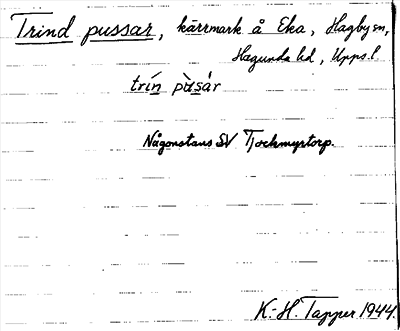 Trind pussar, kärrmark å Eka, Hagby sn,
Hagunda hd, Upps. l.
trín pùsár
Någonstans SV Tjockmyrtorp.
K.-H. Tapper 1944.